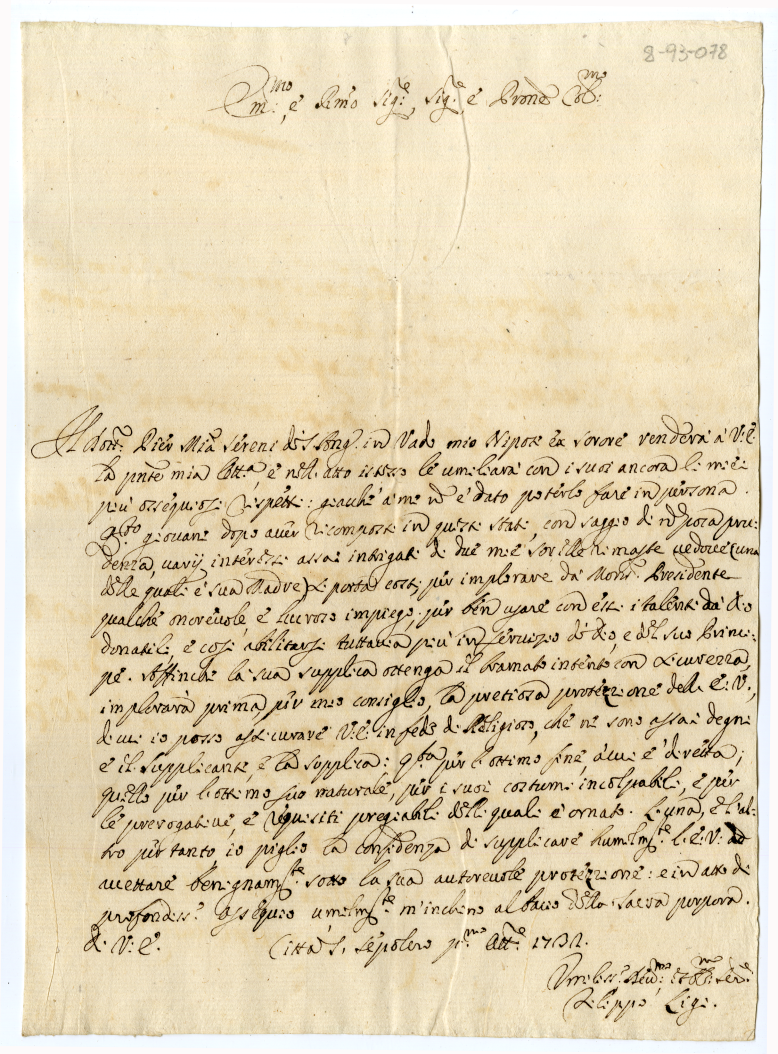 8-93-078
Em:mo, e Rev͠mo Sig:e, Sig:e e Prone Col:mo
Il Dott:r Pier M:a Sereni di S. Ang: in Vado mio Nipote ex sorore renderà a V: E:
la pñte mia lett:a e nell'atto istesso le umiliarà con i suoi ancora li miei
più ossequiosi rispetti: giacchè a me ñ è dato poterlo fare in persona.
Q:sto giovane dopo aver ricomposte in queste stati, con saggio di ñ poca pru-
denza, varij interessi assai intrigati di due mie sorelle rimaste vedove (una
delle quali è sua Madre) si porta costì, per implorare da Mons: Presidente
qualche onorevole e lucroso impiego, per ben usare con essi i talenti da dio
donatili, e così abilitarsi tuttavia più in servizio di dio, e del suo Princi-
pe. Affinchè la sua supplica ottenga il bramato intento con sicurezza,
implorarà prima, per mio consiglio, la pretiosa protezzione dell' E: V:,
di cui io posso assicurare V: E: in fede di Religioso, che ne sono assai degni
e il supplicante, e la supplica: q:sta per l'ottimo fine, à cui è diretta;
quello per l'ottimo suo naturale, per i suoi costumi incolpabili, e per
le prerogative, e requisiti pregiabili delli quali è ornato. L'una, e l'al-
tro per tanto, io piglio la confidenza di supplicare humilm:te l'E: V: ad
mettare benignam:te sotto la sua autorevole protezzione: e in atto di
profondiss:o ossequio umilm:te m'inchino al bacio della sacra porpora.
di V: E:          Città S. Sepolcro p:mo Ott:e 1732.
Umiliss: Dev:mo et Obl:mo Ser:e
Filippo Ligi.